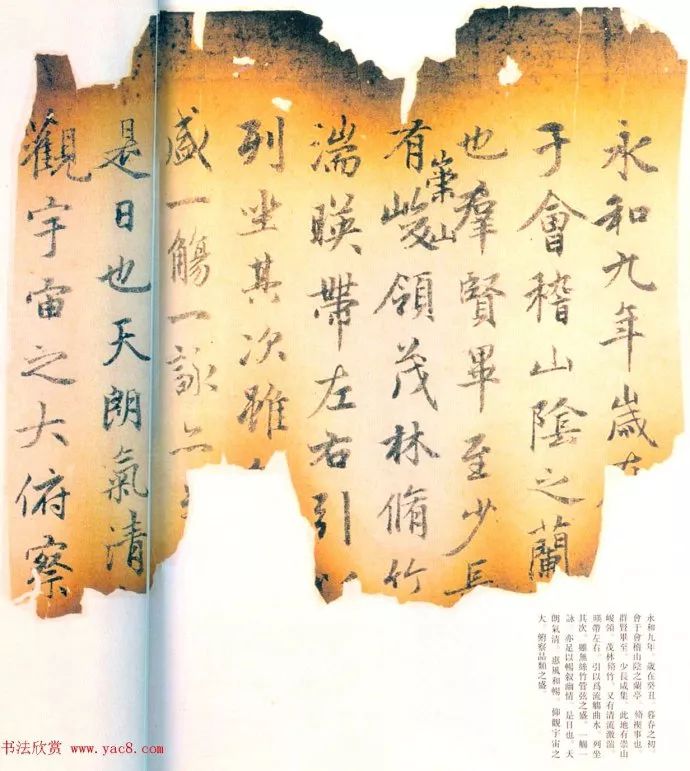 永和九年歲在
于會稽山陰之蘭
也羣賢畢至少長
有崇山峻領茂林脩竹
湍暎帶左右引
列坐其次雖
盛一觴一詠亦
是日也天朗氣清
觀宇宙之大俯察
永和九年,歲在癸丑,暮春之初,
會于會稽山陰之蘭亭,脩禊事也。
群賢畢至,少長咸集。此地有崇山
峻領,茂林脩竹,又有清流激湍,
暎帶左右,引以爲流觴曲水,列坐
其次。雖無絲竹管弦之盛,一觴一
詠,亦足以暢叙幽情。是日也,天
朗氣清,惠風和暢,仰觀宇宙之
大,俯察品類之盛
书法欣赏 www.yac8.com